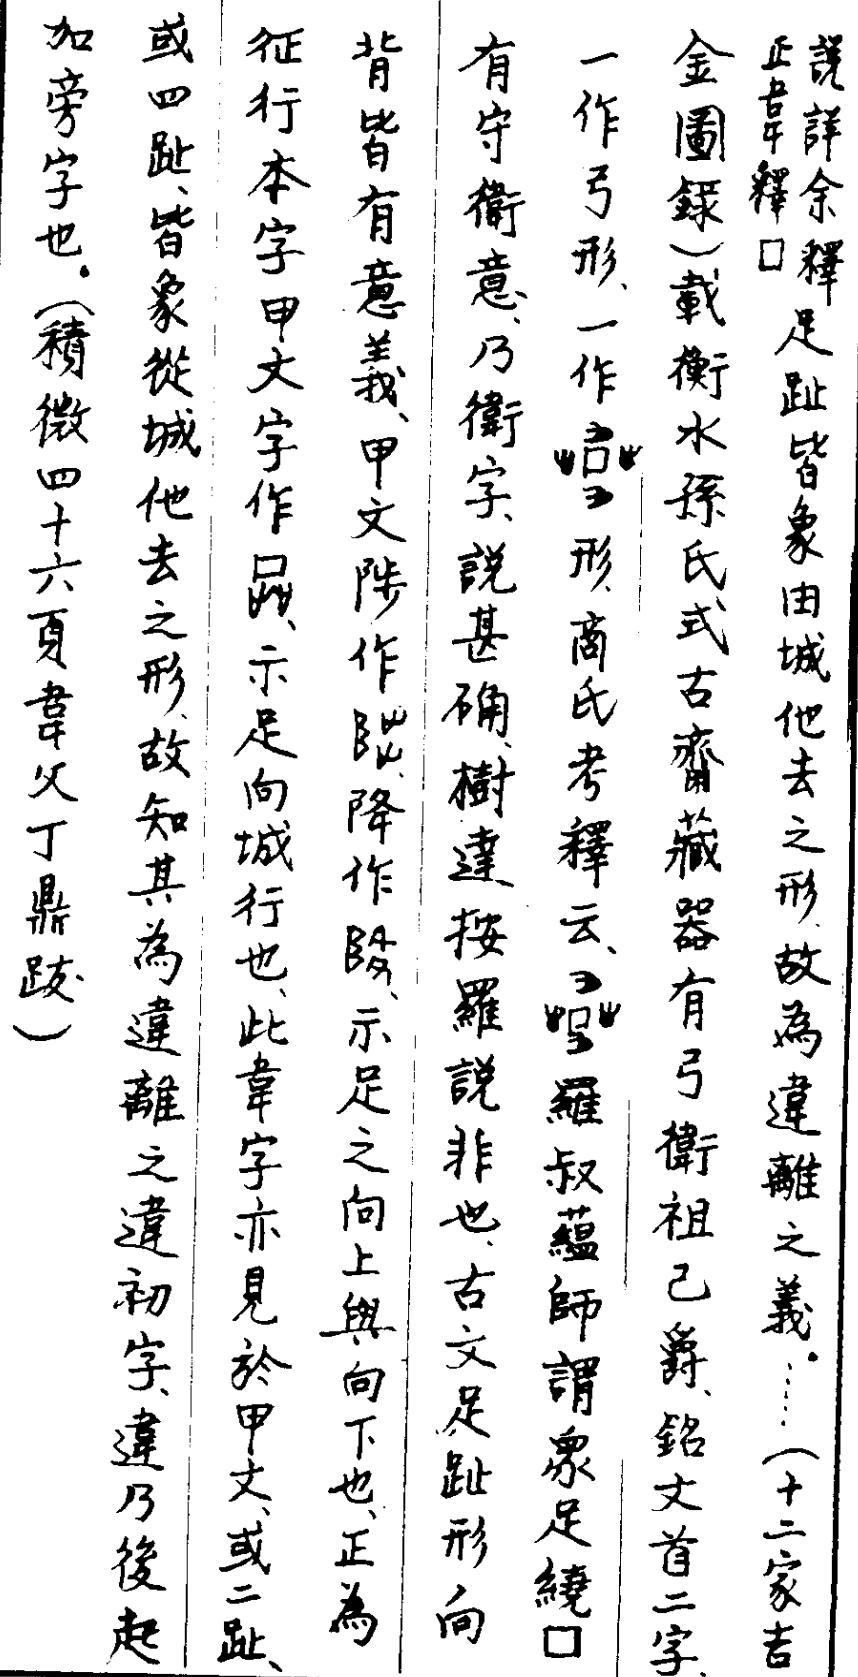 說詳余釋正韋釋囗足趾皆象由城他去之形、故為違離之義。……(十二家吉
金圖錄)載衡水孫氏式古齋藏器有弓衛祖己爵、銘文首二字、
一作弓形、一作形、商氏考釋云、羅叔蘊師謂象足繞囗
有守衛意、乃衛字、說甚确、樹達按羅說非也、古文足趾形向
背皆有意義、甲文陟作、降作、示足之向上與向下也、正為
征行本字甲文字作、示足向城行也、此韋字亦見於甲文、或二趾、
或四趾、皆象從城他去之形、故知其為違離之違初字、違乃後起
加旁字也。(積微四十六頁韋父丁鼎跋)